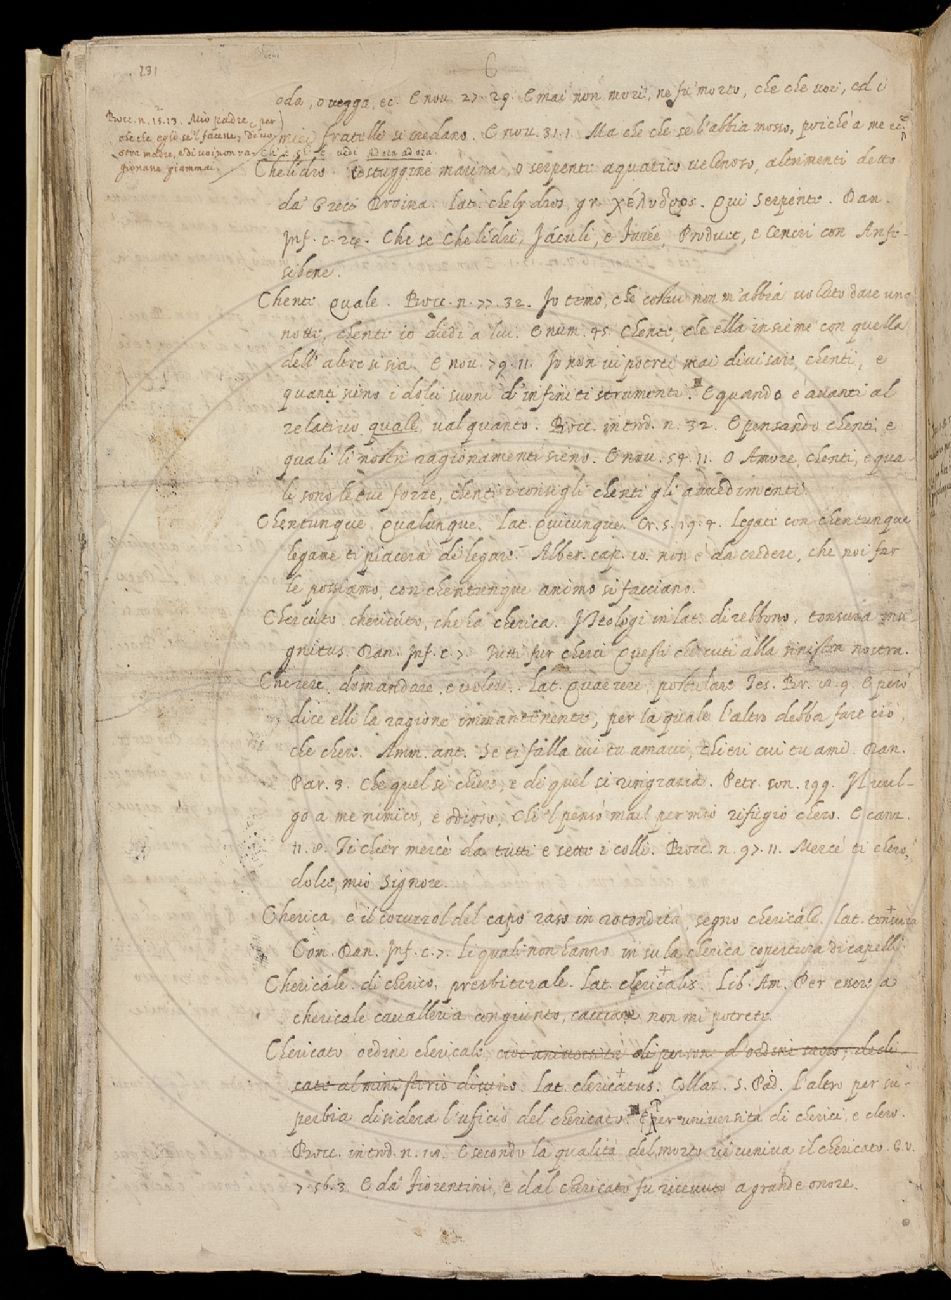 231
C
oda, o vegga, ec. E nov. 27. 29. E mai non morì, ne fu morto, che che voi, ed i
miei fratelli si credano. E nov. 31. 1. Ma che che se l'abbia mosso, poichè a me
Bocc. n. 15. 13. Mio padre, per
che che egli se'l facesse, di vo-
stra madre, e di voi non ra-
gionane giammai
vedi ad ora ad ora
Chelidro. testuggine marina, o serpente aquatico velenoso, altrimenti detto
da Greci Lat. chelydros, gr. χέλυδρος. Qui Serpente. Dan.
Inf. c. 24. Che se Chelidri, Jáculi, e Farée, Produce, e Cencri con Anfe-
sibene.
Chente Quale. Bocc. n. 77. 32. Io temo, che costui non m'abbia voluto dare una
notte, chente io diedi a lui. E num. 45. Chente, che ella insieme con quella
dell'altre si sia. E nov. 79. 11. Io non vi potrei mai divisare chenti, e
quanti sieno i dolci suoni d'infiniti strumenti. E quando è avanti al
relativo quale, val quanto. Bocc. introd. n. 32. E pensando chenti, e
quali li nostri ragionamenti sieno. E nov. 54. 11. O Amore, chenti, e qua-
li sono le tue forze, chenti i consigli chenti gli avvedimenti
Chentunque Qualunque. Lat. Quicunque. Cr. 5. 19. 4. Legati con chentunque
legame ti piacerà di legare. Alber. cap. 10. non è da credere, che noi far
le possiamo, con chentunque animo si facciano.
Chercúto. chericúto, che ha cherica. I Teologi in lat. direbbono, tonsura
gnitus. Dan. Inf. c. 7. Tutti fur cherci Questi chercuti alla sinistra nostra.
Cherere. domandare, e volere. Lat. Quaerere, postulare Tes. Br. 9. E però
dice elli la ragione immantenente, per la quale l'altro debba fare ciò,
che chere. Amm. ant. Se ti falla cui tu amavi, cheri cui tu ami. Dan.
Par. 3. Che quel si chere, e di quel si ringrazia. Petr. son. 199. Il vul-
go a me nimico, e odioso, Chi'l pensò mai! per mio rifugio chero. E canz.
Ti cheér mercè da tutti e sette i colli. Bocc. n. 97. 11. Mercé ti chero,
dolce mio Signore.
Cherica, è il cocuzzol del capo raso in rotondità, segno chericále. Lat. tonsura
Com. Dan. Inf. c. 7. Li quali non hanno in su la cherica copertura di capelli
Chericále. di cherico, presbiterale. Lat. clericalis. Lib. Am. Per essere a
chericale cavalleria congiunto, cacciare non mi potrete.
Chericato ordine chericale, cioè università di persone d'ordini sacro, dedi
cate al ministerio divino. Lat. clericatus. Collaz. S. Pad. L'altro per su-
perbia disidera l'uficio del chericato. E per università di cherici, e clero.
Bocc. introd. n. E secondo la qualità del morto vi veniva il chericato. G. V.
7. 56. 3. E da' Fiorentini, e dal chericato fu ricevuto a grande onore.